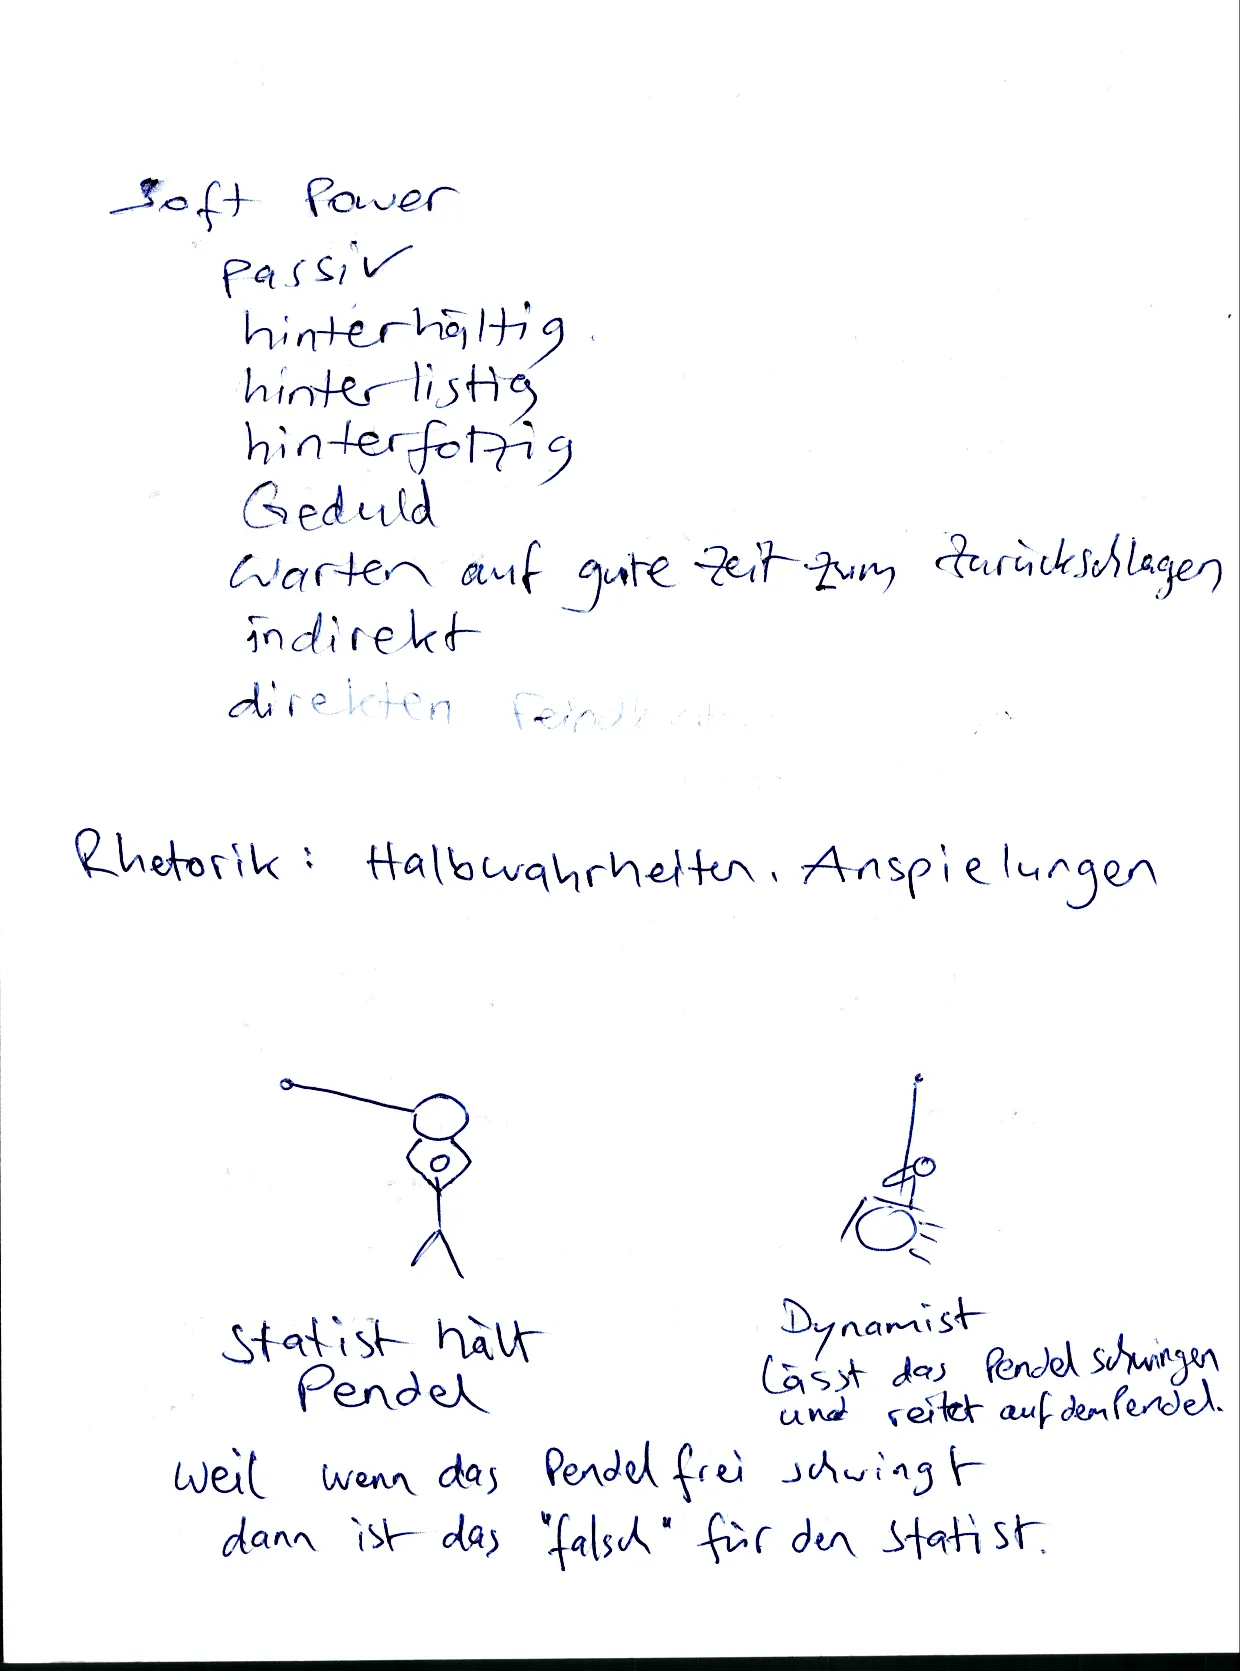 Soft Power
passiv
hinterhältig
hinterlistig
hinterfotzig
Geduld
warten auf gute Zeit zum Zurückschlagen
indirekt
direkten
Rhetorik: Halbwahrheiten, Anspielungen
Statist hält
Pendel
Dynamist
lässt das Pendel schwingen
und reitet auf dem Pendel.
weil wenn das Pendel frei schwingt
dann ist das "falsch" für den Statist.